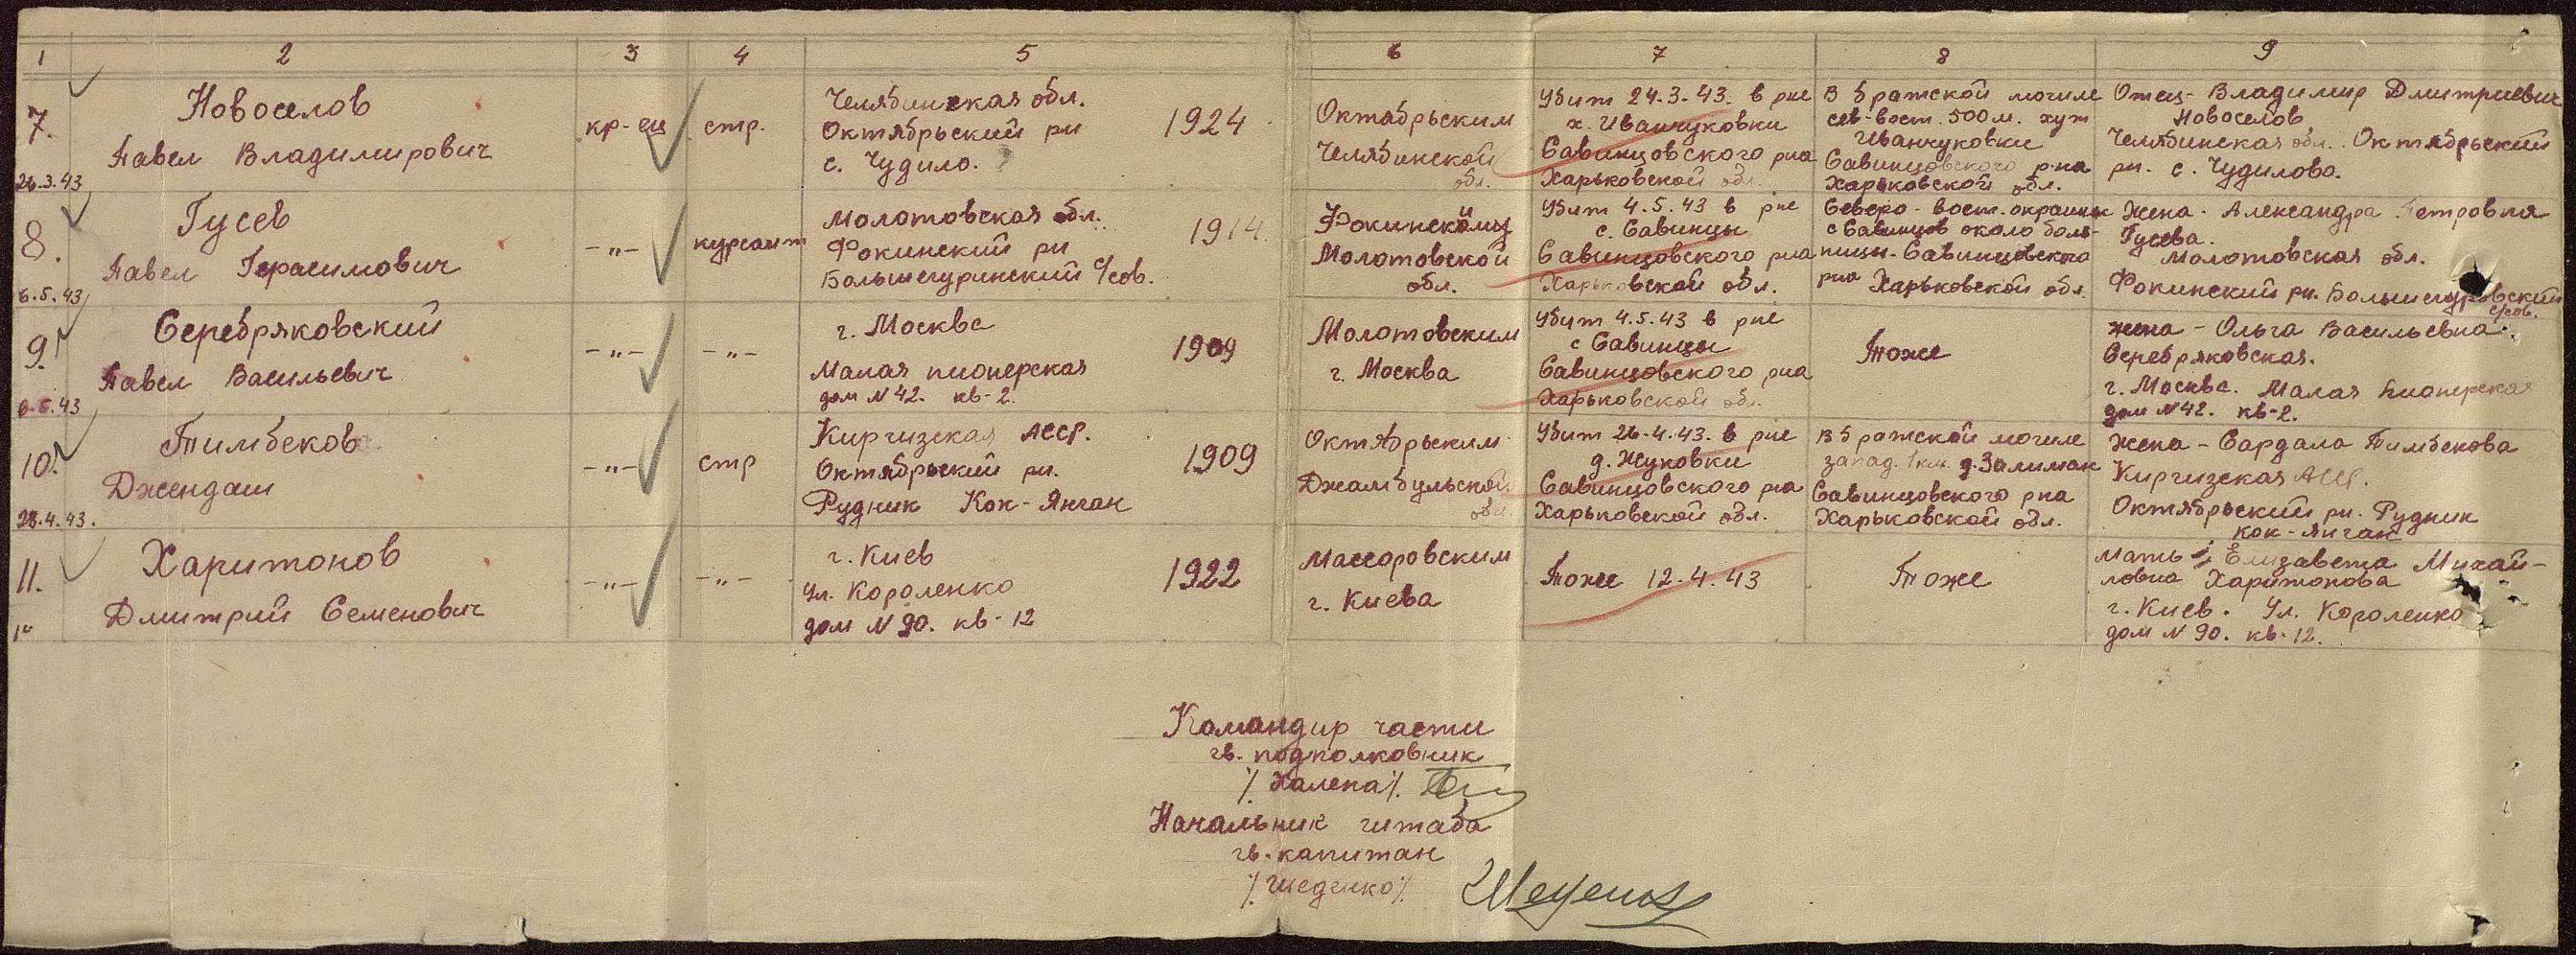 1 2 3 4 5 6 7 8 9
7.
26.3.43
Новоселов
Павел Владимирович
кр-ец
стр.
Челябинская обл.
Октябрьский рн
с. Чудило.
1924
Октябрьским
Челябинской
обл.
Убит 24.3.43. в рне
х. Иванчуковки
Савинцовского рна
Харьковской обл.
В братской могиле
сев-вост. 500 м. хут
Иванчуковки
Савинцовского р-на
Харьковской обл.
Отец - Владимир Дмитриевич
Новоселов
Челябинская обл. Октябрьский
рн. с. Чудилово.
8.
6.5.43
Гусев
Павел Герасимович
-"-
курсант
Молотовская обл.
Фокинский рн
Большегуринский с/сов.
1914
Фокинским
Молотовской
обл.
Убит 4.5.43 в рне
с. Савинцы
Савинцовского рна
Харьковской обл.
Северо-вост. окраины
с Савинцов около боль-
ницы. Савинцовского
рна Харьковской обл.
Жена. Александра Петровна
Гусева.
Молотовская обл.
Фокинский рн.
с/сов.
9.
6.5.43
Серебряковский
Павел Васильевич
-"-
-"-
г. Москва
Малая пионерская
дом N 42. кв-2.
1909
Молотовским
г. Москва
Убит 4.5.43 в рне
с Савинцы
Савинцовского рна
Харьковской обл.
Тоже
жена - Ольга Васильевна
Серебряковская.
г. Москва. Малая Пионерская
дом N 42. кв-2.
10.
28.4.43.
Тимбеков
Джендаш
-"-
стр
Киргизская АССР.
Октябрьский рн.
Рудник Кок-Янгак
1909
Октябрьским
Джамбульской
обл
Убит 26.4.43. в рне
д. Жуковки
Савинцовского рна
Харьковской обл.
В братской могиле
запад. 1 км. д. Залиман
Савинцовского рна
Харьковской обл.
жена - Сардала Тимбекова
Киргизская АССР.
Октябрьский рн. Рудник
Кок-Янгак
11.
1"
Харитонов
Дмитрий Семенович
-"-
-"-
г. Киев
ул. Короленко
дом N 90. кв-12
1922
Массоровским
г. Киева
Тоже 12.4.43
Тоже
Мать - Елизавета Михай-
ловна Харитонова
г. Киев. Ул. Короленко
дом N 90. кв-12.
Командир части
гв. подполковник
/Халепа/.
Начальник штаба
гв. капитан
/Шеденко/.